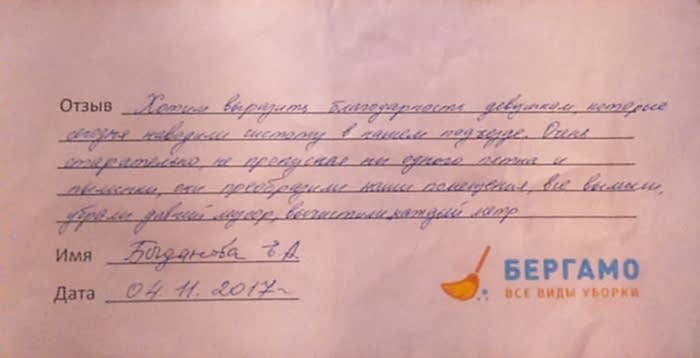 Отзыв Хотим выразить благодарность девушкам, которые
сегодня наводили чистоту в нашем подъезде. Очень
старательно, не пропуская ни одного пятна и
пылинки, они преобразили наши помещения, все вымыли,
убрали давний мусор, вычистили каждый метр
Имя Богданова Е.А.
Дата 04.11.2017г
БЕРГАМО
ВСЕ ВИДЫ УБОРКИ